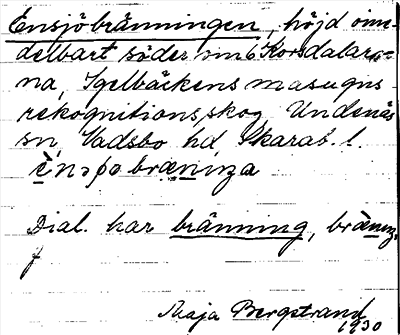 Ensjöbränningen, höjd ome-
delbart söder om Korsdalar-
na, Igelbäckens masugns-
rekognitionsskog, Undenäs
sn, Vadsbo hd, Skarab. l.
Dial. har bränning,
f
Maja Bergstrand
1930